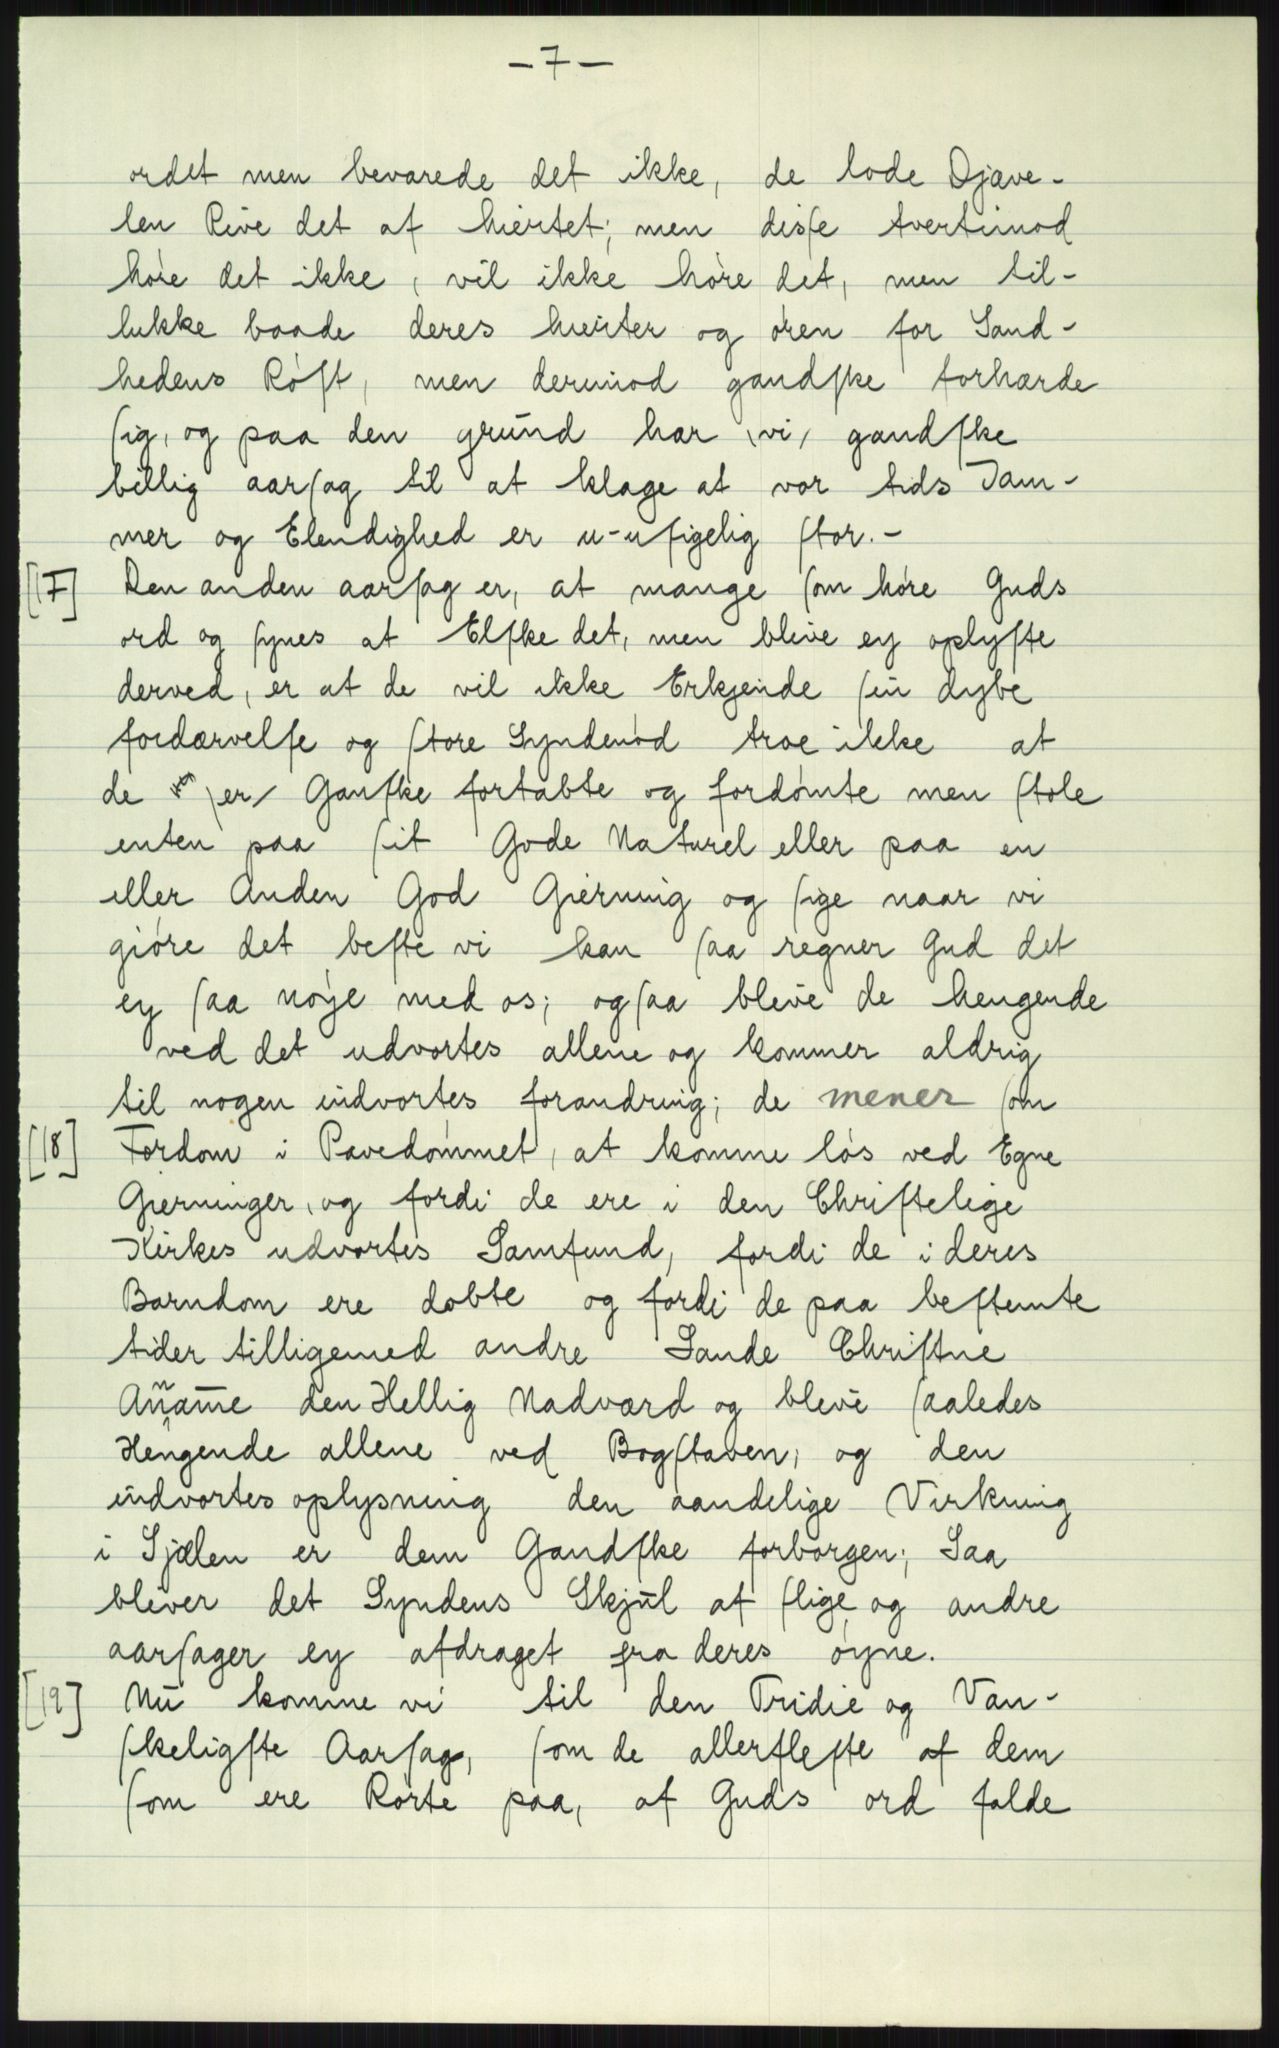 -7-
ordet men bevarede det ikke, de lode Djæve-
len Rive det af hiertet; men disſe tvertimod
høre det ikke, vil ikke høre det, men til-
lukke baade deres hierter og øren for Sand-
hedens Røſt, men derimod gandſke forhærde
ſig, og paa den grūnd har \vi/ gandſke
billig aarſag til at klage at vor tids Jam-
mer og Elendighed er u-uſigelig ſtor.-
[17] Den anden aarſag er, at mange ſom høre Guds
ord og ſynes at Elſke det, men blive ey oplyſte
derved, er at de vil ikke Erkjende ſin dybe
fordærvelſe og ſtore Syndenød troe ikke at
de \er/ Ganſke fortabte og fordømte men ſtole
enten paa ſit Gode Naturel eller paa en
eller Anden God Gierning og ſige naar vi
giøre det beſte vi kan ſaa regner Gud det
ey ſaa nøje med os; og ſaa blive de hengende
ved det udvortes allene og kommer aldrig
til nogen indvortes forandring; de mener ſom
[18] Fordom i Pavedømmet, at komme løs ved Egne
Gierninger, og fordi de ere i den Chriſtelige
Kirkes udvortes Samfund, fordi de i deres
Barndom ere døbte og fordi de paa beſtemte
tider tilligemed andre Sande Chriſtne
An̄am̄e den Hellig Nadværd og blive ſaaledes
Hengende allene ved Bogſtaven, og den
indvortes oplysning den aandelige Virkning
i Sjælen er dem Gandſke forborgen; Saa
bliver det Syndens Skjūl af ſlige og andre
aarſager ey afdraget fra deres øyne.
[19] Nū komme vi til den Tridie og Van-
ſkeligſte Aarſag, ſom de allerfleſte af dem
ſom ere Rørte paa, af Guds ord falde